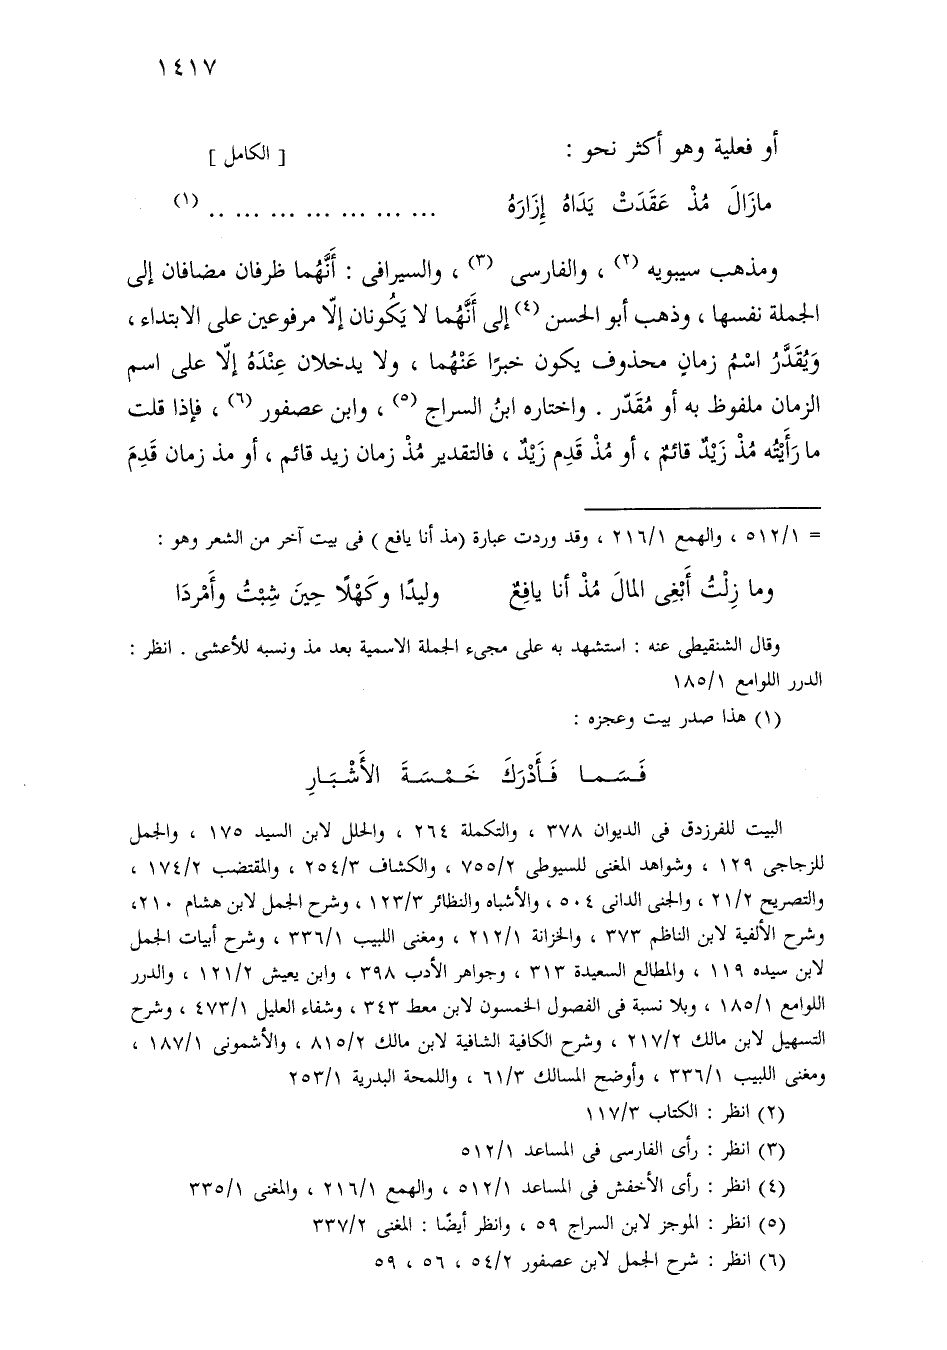 ١٤١٧
أو فعلية وهو أكثر نحو : [ الكامل ]
مازَالَ مُذْ عَقَدَتْ يَدَاهُ إِزَارَهُ ... ... ... ... ... ... .. (١)
ومذهب سيبويه (٢) ، والفارسى (٣) ، والسيرافى : أَنَّهُما ظرفان مضافان إلى
الجملة نفسها ، وذهب أبو الحسن (٤) إلى أَنَّهُما لا يَكُونان إلّا مرفوعين على الابتداء ،
وَيُقَدَّرُ اسْمُ زمانٍ محذوف يكون خبرًا عَنْهُما ، ولا يدخلان عِنْدَهُ إلّا على اسم
الزمان ملفوظ به أو مُقَدّر . واختاره ابنُ السراج (٥) ، وابن عصفور (٦) ، فإذا قلت
ما رَأَيْتُه مُذْ زَيْدٌ قائمٌ ، أو مُذْ قَدِم زَيْدٌ ، فالتقدير مُذْ زمان زيد قائم ، أو مذ زمان قَدِمَ
= ٥١٢/١ ، والهمع ٢١٦/١ ، وقد وردت عبارة (مذ أنا يافع ) فى بيت آخر من الشعر وهو :
وما زِلْتُ أَبْغِى المالَ مُذْ أنا يافِعٌ وليدًا وكَهْلًا حِينَ شِبْتُ وأَمْردَا
وقال الشنقيطى عنه : استشهد به على مجىء الجملة الاسمية بعد مذ ونسبه للأعشى . انظر :
الدرر اللوامع ١٨٥/١
(١) هذا صدر بيت وعجزه :
فَسَما فَأَدْرَكَ خَمْسَةَ الأَشْبَارِ
البيت للفرزدق فى الديوان ٣٧٨ ، والتكملة ٢٦٤ ، والحلل لابن السيد ١٧٥ ، والجمل
للزجاجى ١٢٩ ، وشواهد المغنى للسيوطى ٧٥٥/٢ ، والكشاف ٢٥٤/٣ ، والمقتضب ١٧٤/٢ ،
والتصريح ٢١/٢ ، والجنى الدانى ٥٠٤ ، والأشباه والنظائر ١٢٣/٣ ، وشرح الجمل لابن هشام ٢١٠،
وشرح الألفية لابن الناظم ٣٧٣ ، والخزانة ٢١٢/١ ، ومغنى اللبيب ٣٣٦/١ ، وشرح أبيات الجمل
لابن سيده ١١٩ ، والمطالع السعيدة ٣١٣ ، وجواهر الأدب ٣٩٨ ، وابن يعيش ١٢١/٢ ، والدرر
اللوامع ١٨٥/١ ، وبلا نسبة فى الفصول الخمسون لابن معط ٣٤٣ ، وشفاء العليل ٤٧٣/١ ، وشرح
التسهيل لابن مالك ٢١٧/٢ ، وشرح الكافية الشافية لابن مالك ٨١٥/٢ ، والأشمونى ١٨٧/١ ،
ومغنى اللبيب ٣٣٦/١ ، وأوضح المسالك ٦١/٣ ، واللمحة البدرية ٢٥٣/١
(٢) انظر : الكتاب ١١٧/٣
(٣) انظر : رأى الفارسى فى المساعد ٥١٢/١
(٤) انظر : رأى الأخفش فى المساعد ٥١٢/١ ، والهمع ٢١٦/١ ، والمغنى ٣٣٥/١
(٥) انظر : الموجز لابن السراج ٥٩ ، وانظر أيضًا : المغنى ٣٣٧/٢
(٦) انظر : شرح الجمل لابن عصفور ٥٤/٢ ، ٥٦ ، ٥٩